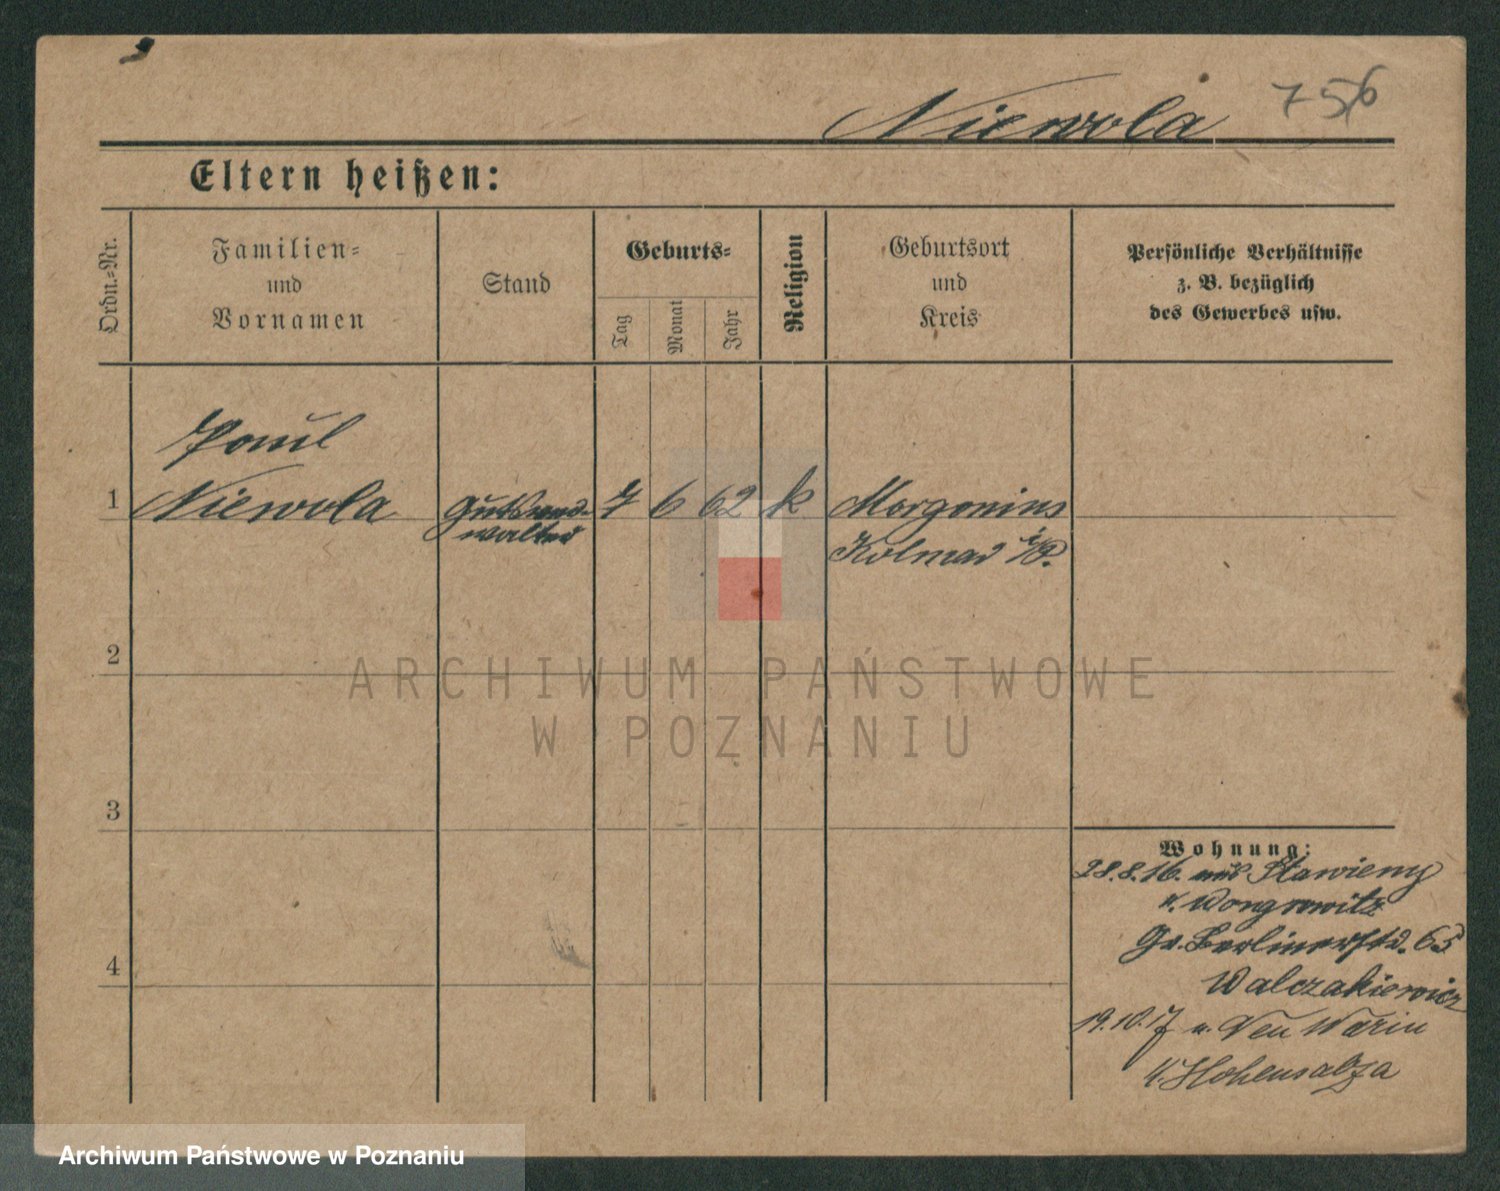 Niewola 756
Eltern heißen:
Ordn.=Nr.
Familien=
und
Vornamen
Stand
Geburts=
Tag
Monat
Jahr
Religion
Geburtsort
und
Kreis
Persönliche Verhältnisse
z. B. bezüglich
des Gewerbes usw.
Paul
1 Niewola Gutsver- 7 6 62 k Margonin
walter Kolmar i/P.
2
3
4
Wohnung:
28.8.16. aus Stawieny
K. Wongrowitz
Gr. Berlinerstr. 65
Walczakiewicz
19.10.17 n. Neu Warin
K. Hohensalza
ARCHIWUM PAŃSTWOWE
W POZNANIU
Archiwum Państwowe w Poznaniu